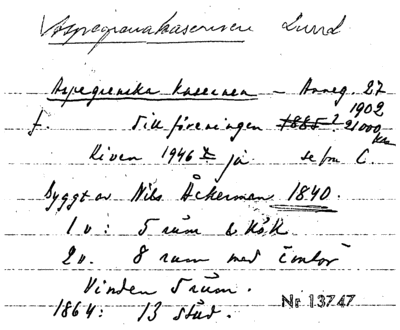 Aspegrenska kasernen Lund
Aspegrenska kasernen – Anneg. 27
1902
f. Till föreningen 1885? 21000 kr
Riven 1946 ja se fr. C.
Byggt av Nils Åckerman 1840.
1 v: 5 rum & kök
2 v. 8 rum med
Vinden 5 rum.
1864: 13 stud.
Nr 13747